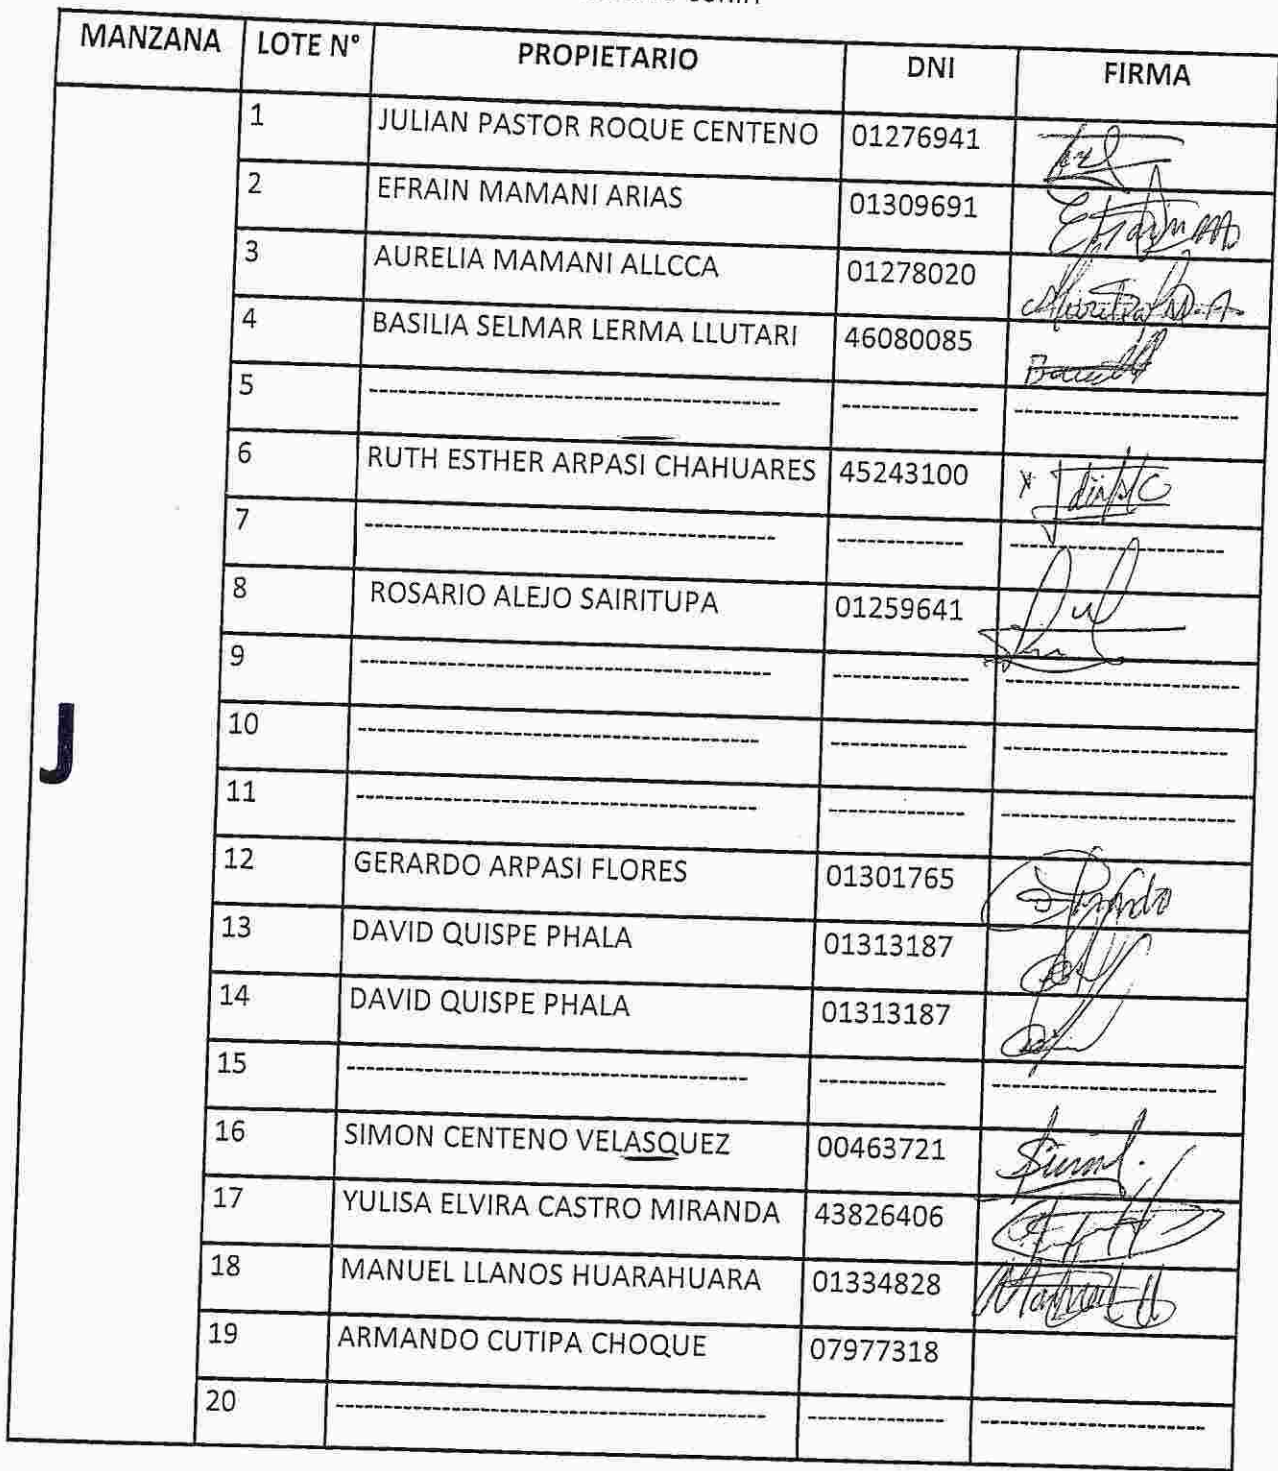 MANZANA LOTE N° PROPIETARIO DNI FIRMA
1 JULIAN PASTOR ROQUE CENTENO 01276941
2 EFRAIN MAMANI ARIAS 01309691
3 AURELIA MAMANI ALLCCA 01278020
4 BASILIA SELMAR LERMA LLUTARI 46080085
5 ---------- ---------- ----------
6 RUTH ESTHER ARPASI CHAHUARES 45243100
7 ---------- ---------- ----------
8 ROSARIO ALEJO SAIRITUPA 01259641
9 ---------- ---------- ----------
J
10 ---------- ---------- ----------
11 ---------- ---------- ----------
12 GERARDO ARPASI FLORES 01301765
13 DAVID QUISPE PHALA 01313187
14 DAVID QUISPE PHALA 01313187
15 ---------- ---------- ----------
16 SIMON CENTENO VELASQUEZ 00463721
17 YULISA ELVIRA CASTRO MIRANDA 43826406
18 MANUEL LLANOS HUARAHUARA 01334828
19 ARMANDO CUTIPA CHOQUE 07977318
20 ---------- ---------- ----------